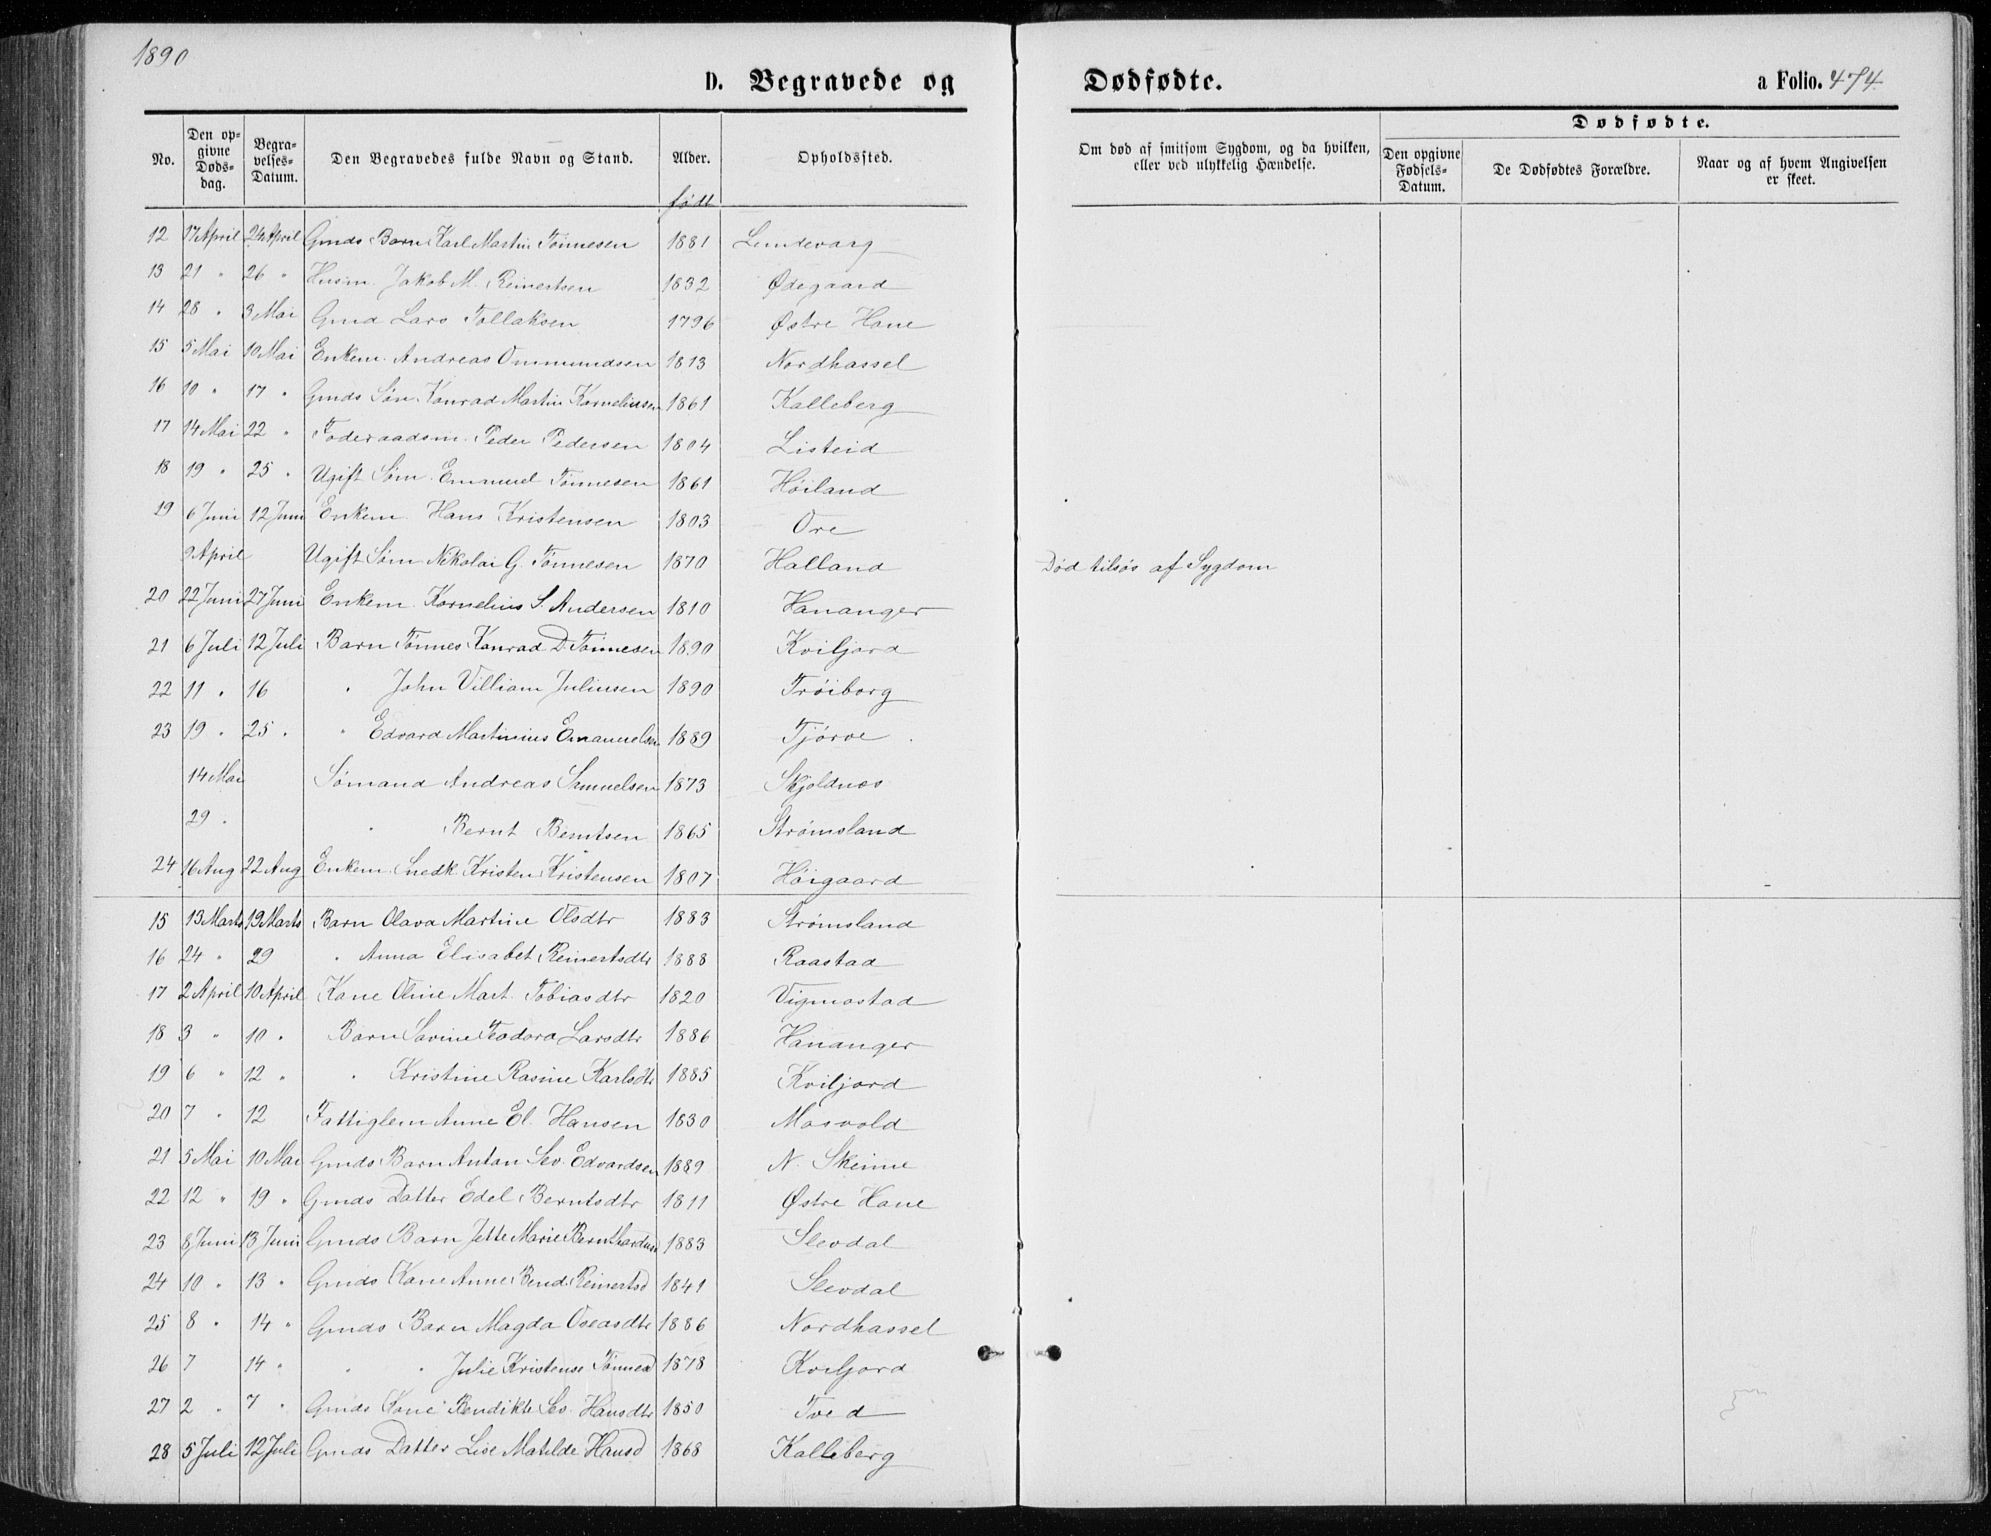 1890
D. Begravede og Dødfødte. a Folio. 474
No. Den opgivne Dødsdag. Begravelses-Datum. Den Begravedes fulde Navn og Stand. Alder. født Opholdssted. Om død af smitsom Sygdom, og da hvilken, eller ved ulykkelig Hændelse. Dødfødte. Den opgivne Fødsels-Datum. De Dødfødtes Forældre. Naar og af hvem Angivelsen er skeet.
12 17 April 24 April Gmds Barn Karl Martin Tønnesen 1881 Lundevaag
13 21 " 26 " Husm. Jakob M. Reinertsen 1832 Ødegaard
14 28 " 3 Mai Gmd Lars Tollaksen 1796 Østre Hane
15 5 Mai 10 Mai Enkem. Andreas Ommundssen 1813 Nordhassel
16 10 " 17 " Gmds Søn Konrad Martin Korneliussen 1861 Kalleberg
17 14 Mai 22 " Foderaadsm. Peder Pedersen 1804 Listeid
18 19 " 25 " Ugift Søm. Emanuel Tønnesen 1861 Høiland
19 6 Juni 12 Juni Enkem. Hans Kristensen 1803 Ore
9 April Ugift Søm Nikolai G. Tønnesen 1870 Halland Død tilsøs af Sygdom
20 22 Juni 27 Juni Enkem. Kornelius S. Andersen 1810 Hananger
21 6 Juli 12 Juli Barn Tønnes Konrad D. Tønnesen 1890 Kviljord
22 11 " 16 " John Villiam Juliusen 1890 Trøiborg
23 19 " 25 " " Edvard Martinius Emanuelsen 1889 Tjørve
14 Mai Sømand Andreas Samuelsen 1873 Skjoldnes
29 " " Bernt Berntsen 1865 Strømsland
24 16 Aug 22 Aug Enkem. Snedk Kristen Kristensen 1807 Høigaard
15 13 Marts 19 Marts Barn Olava Martine Olsdtr 1883 Strømsland
16 24 " 29 " Anna Elisabet Reinertsdtr 1888 Raastad
17 2 April 10 April Kone Oline Mart. Tobiasdtr 1820 Vigmostad
18 3 " 10 " Barn Savine Teodora Larsdtr 1886 Hananger
19 6 " 12 " " Kristine Rasine Karlsdtr 1885 Kviljord
20 7 " 12 Fattiglem Anne El. Hansen 1830 Mosvold
21 5 Mai 10 Mai Gmds Barn Antan Sev. Edvardsen 1889 N. Skeime
22 12 " 19 " Gmds Datter Edel Berntsdtr 1811 Østre Hane
23 8 Juni 13 Juni Gmds Barn Jette Marie Bernthardsd 1883 Slevdal
24 10 " 13 " Gmds Kone Anne Bend. Reinertsd 1841 Slevdal
25 8 " 14 " Gmds Barn Magda Oseasdtr 1886 Nordhassel
26 7 14 " " " Julie Kristense Tønnesd 1878 Kviljord
27 2 " 7 " Gmds Kone Bendikte Sev. Hansdtr 1850 Tved
28 5 Juli 12 Juli Gmds Datter Lise Matilde Hansd 1868 Kalleberg